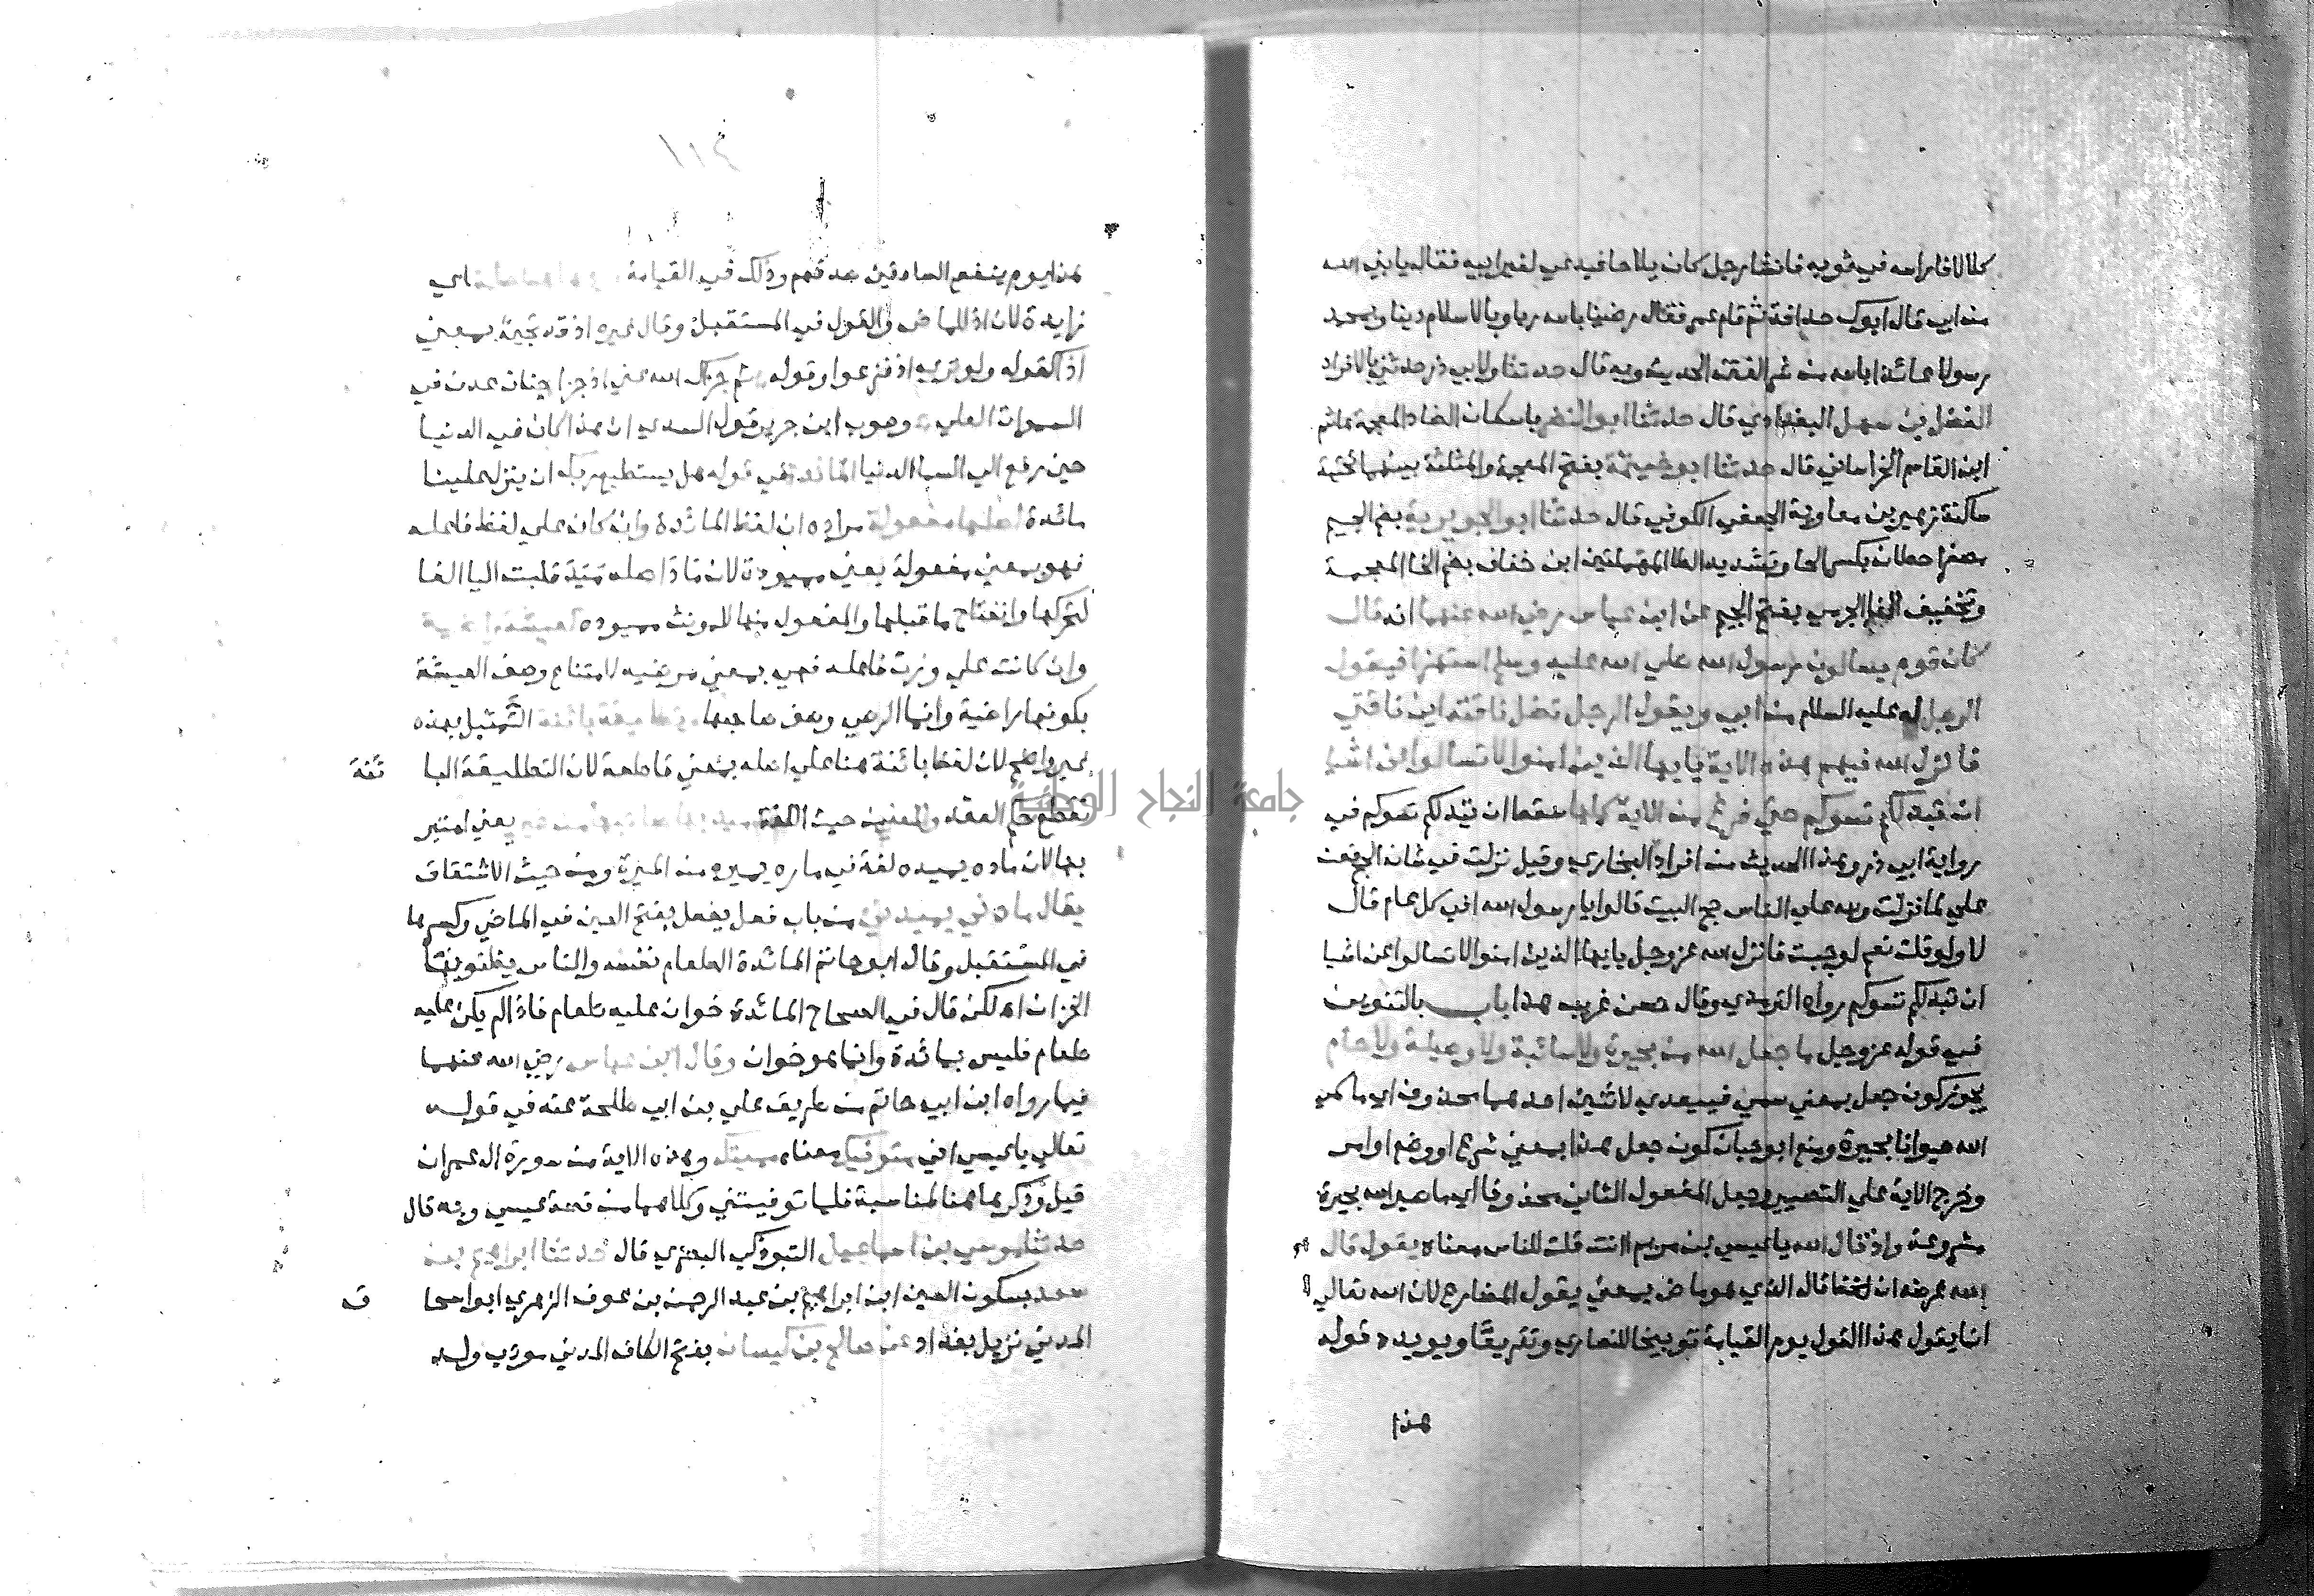 كلا لافا راسه في ثوبه فانشا رجل كان يلاحا فيدعي لغير ابيه فقال يا بني الله
من ابي قال ابوك حذافة ثم قام عمر فقال رضينا بالله ربا وبالاسلام دينا وبمحمد
رسولا عائذا بالله من شر الفتن الحديث وبه قال حدثنا ولابي ذر حدثني بالافراد
الفضل بن سهل البغدادي قال حدثنا ابو النضر باسكان الضاد المعجمة هاشم
ابن القاسم الخراساني قال حدثنا ابو خيثمة بفتح المعجمة والمثلثة بينهما تحتية
ساكنة زهير بن معاوية الجعفي الكوفي قال حدثنا ابو الجويرية بضم الجيم
مصغرا حطان بكسر الحا وتشديد الطا المهملتين ابن خفاف بضم الخا المعجمة
وتخفيف الفا الجرمي بفتح الجيم عن ابن عباس رضي الله عنهما انه قال
كان قوم يسالون رسول الله صلي الله عليه وسلم استهزا فيقول
الرجل له عليه السلام من ابي ويقول الرجل تضل ناقته اين ناقتي
فانزل الله فيهم هذه الاية يا يها الذين امنوا لا تسالوا عن اشيا
ان تبد لكم تسوكم حتي فرغ من الاية كلها سقط ان تبد لكم تسوكم في
رواية ابي ذر وهذا الحديث من افراد البخاري وقيل نزلت في شان الحج فعن
علي لما نزلت ولله علي الناس حج البيت قالوا يا رسول الله افي كل عام قال
لا ولو قلت نعم لوجبت فانزل الله عز وجل يا يها الذين امنوا لا تسالوا عن اشيا
ان تبد لكم تسوكم رواه الترمذي وقال حسن غريب هذا باب بالتنوين
في قوله عز وجل ما جعل الله من بحيرة ولا سائبة ولا وصيلة ولا حام
يجوز كون جعل بمعني سمي فيتعدي لاثنين احدهما محذوف اي ما سمي
الله حيوانا بحيرة ومنع ابو حيان كون جعل هنا بمعني شرع او وضع او امر
وخرج الاية علي التصيير وجعل المفعول الثاني محذوفا اي ما صير الله بحيرة
مشروعة واذ قال الله يا عيسي بن مريم اانت قلت للناس معناه يقول قال
الله غرضه ان لفظ قال الذي هو ماض بمعني يقول المضارع لان الله تعالي
انما يقول هذا القول يوم القيامة توبيخا للنصاري وتقريعا ويويده قوله
هذا
١١٤
هذا يوم ينفع الصادقين صدقهم وذلك في القيامة واذ هاهنا صلة اي
زايدة لان اذ للماضي والقول في المستقبل وقال غيره اذ قد تجيء بمعني
اذا كقوله ولو تري اذ فزعوا وقوله ثم جزاك الله عني اذ جزا جنات عدن في
السموات العلي وصوب ابن جرير قول السدي ان هذا كان في الدنيا
حين رفع الي السما الدنيا المائدة في قوله هل يستطيع ربك ان ينزل علينا
مائدة اصلها مفعولة مراده ان لفظ المائدة وان كان علي لفظ فاعله
فهو بمعني مفعولة يعني مميودة لان ماد اصله ميد قلبت اليا الفا
لتحركها وانفتاح ما قبلها والمفعول منها للمونث مميوده كعيشة راضية
وان كانت علي وزن فاعله فهي بمعني مرضيه لامتناع وصف العيشة
بكونها راضية وانما الرضي وصف صاحبها وتطليقة بائنة التمثيل بهذه
غير واضح لان لفظ بائنة هنا علي اصله بمعني قاطعة لان التطليقة البا ئنة
تقطع حكم العقد والمعني من حيث اللغة ميد بها صاحبها من خير يعني امتير
بها لان ماده يميده لغة في ماره يميره من الميرة ومن حيث الاشتقاق
يقال مادني يميدني من باب فعل يفعل بفتح العين في الماضي وكسرها
في المستقبل وقال ابو حاتم المائدة الطعام نفسه والناس يظنونها
الخوان اه لكن قال في الصحاح المائدة خوان عليه طعام فاذا لم يكن عليه
طعام فليس بمائدة وانما هو خوان وقال ابن عباس رضي الله عنهما
فيما رواه ابن ابي حاتم من طريق علي بن ابي طلحة عنه في قوله
تعالي يا عيسي اني متوفيك معناه مميتك وهذه الاية من سورة ال عمران
قيل وذكرها هنا لمناسبة فلما توفيتني وكلاهما من قصة عيسي وبه قال
حدثنا موسي بن اسماعيل التبوذكي البصري قال حدثنا ابراهيم بن
سعد بسكون العين ابن ابراهيم بن عبد الرحمن بن عوف الزهري ابو اسحا ق
المدني نزيل بغداد عن صالح بن كيسان بفتح الكاف المدني مودب ولد
جامعة النجاح الوطنية